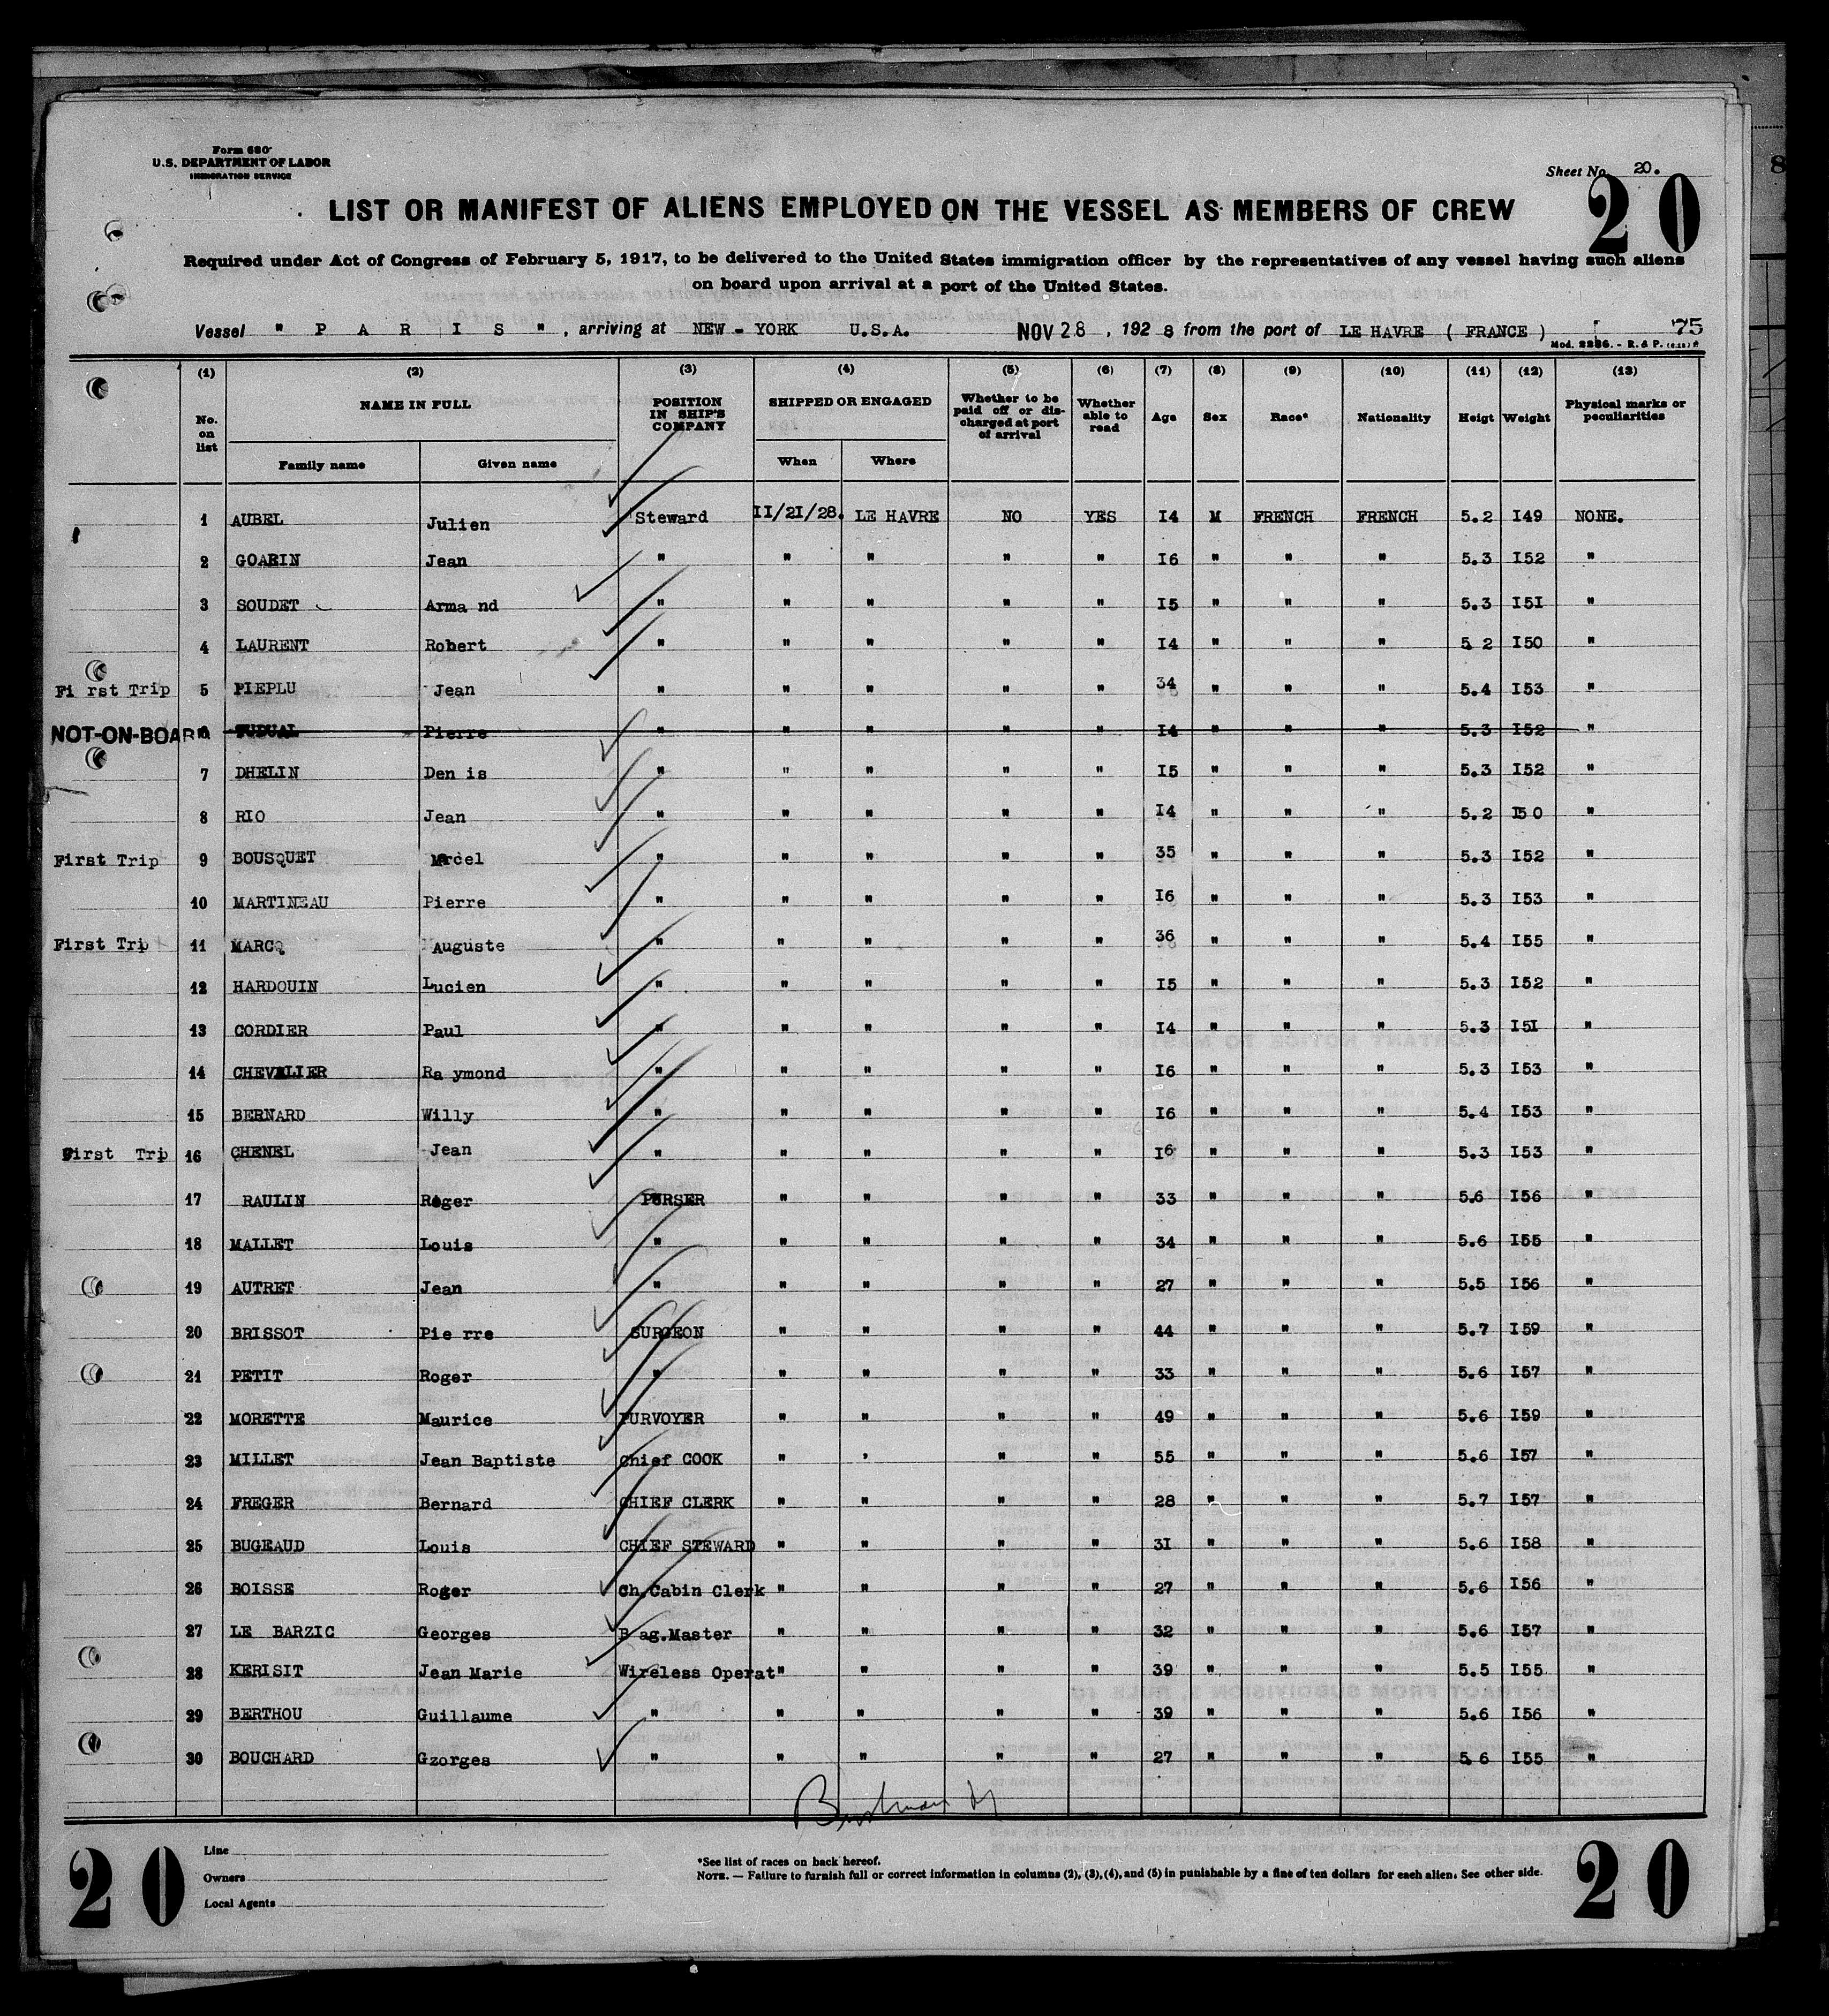 Form 680
U.S. DEPARTMENT OF LABOR
IMMIGRATION SERVICE
Sheet No. 20.
20
LIST OR MANIFEST OF ALIENS EMPLOYED ON THE VESSEL AS MEMBERS OF CREW
Required under Act of Congress of February 5, 1917, to be delivered to the United States immigration officer by the representatives of any vessel having such aliens
on board upon arrival at a port of the United States.
Vessel " P A R I S " , arriving at NEW - YORK U.S.A. NOV 28 , 192 8 from the port of LE HAVRE ( FRANCE ) 75
Mod. 2286. - R. & P.
(1) (2) (3) (4) (5) (6) (7) (8) (9) (10) (11) (12) (13)
No. on list NAME IN FULL Family name Given name POSITION IN SHIP'S COMPANY SHIPPED OR ENGAGED When Where Whether to be paid off or discharged at port of arrival Whether able to read Age Sex Race* Nationality Heigt Weight Physical marks or peculiarities
1 AUBEL Julien Steward II/2I/28. LE HAVRE NO YES I4 M FRENCH FRENCH 5.2 I49 NONE.
2 GOARIN Jean " " " " " I6 " " " 5.3 I52 "
3 SOUDET Arma nd " " " " " I5 " " " 5.3 I5I "
4 LAURENT Robert " " " " " I4 " " " 5 2 I50 "
Fi rst Trip 5 PIEPLU Jean " " " " " 34 " " " 5.4 I53 "
NOT-ON-BOARD 6 TUDUAL Pierre " " " " " I4 " " " 5.3 I52 "
7 DHELIN Den is " " " " " I5 " " " 5.3 I52 "
8 RIO Jean " " " " " I4 " " " 5.2 I5 0 "
First Trip 9 BOUSQUET Marcel " " " " " 35 " " " 5.3 I52 "
10 MARTINEAU Pierre " " " " " I6 " " " 5.3 I53 "
First Trip 11 MARCQ Auguste " " " " " 36 " " " 5.4 I55 "
12 HARDOUIN Lucien " " " " " I5 " " " 5.3 I52 "
13 CORDIER Paul " " " " " I4 " " " 5.3 I5I "
14 CHEVALIER Ra ymond " " " " " I6 " " " 5.3 I53 "
15 BERNARD Willy " " " " " I6 " " " 5.4 I53 "
First Trip 16 CHENEL Jean " " " " " I6 " " " 5.3 I53 "
17 RAULIN Roger PURSER " " " " 33 " " " 5.6 I56 "
18 MALLET Louis " " " " " 34 " " " 5.6 I55 "
19 AUTRET Jean " " " " " 27 " " " 5.5 I56 "
20 BRISSOT Pie rre SURGEON " " " " 44 " " " 5.7 I59 "
21 PETIT Roger " " " " " 33 " " " 5.6 I57 "
22 MORETTE Maurice PURVOYER " " " " 49 " " " 5.6 I59 "
23 MILLET Jean Baptiste Chief COOK " ' " " 55 " " " 5.6 I57 "
24 FREGER Bernard CHIEF CLERK " " " " 28 " " " 5.7 I57 "
25 BUGEAUD Louis CHIEF STEWARD " " " " 3I " " " 5.6 I58 "
26 BOISSE Roger Ch.Cabin Clerk " " " " 27 " " " 5.6 I56 "
27 LE BARZIC Georges B ag.Master " " " " 32 " " " 5.6 I57 "
28 KERISIT Jean Marie Wireless Operat " " " " 39 " " " 5.5 I55 "
29 BERTHOU Guillaume " " " " " 39 " " " 5.6 I56 "
30 BOUCHARD Gzorges " " " " " 27 " " " 5.6 I55 "
20
Line
Owners
Local Agents
*See list of races on back hereof.
NOTE. — Failure to furnish full or correct information in columns (2), (3), (4), and (5) in punishable by a fine of ten dollars for each alien. See other side.
20